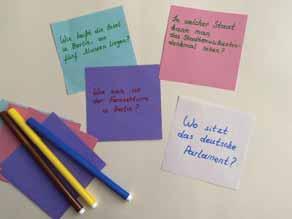 Wie heißt die Insel
in Berlin, wo
fünf Museen liegen?
In welcher Stadt
kann man
das Stadtmusikanten-
denkmal sehen?
Wie hoch ist
der Fernsehturm
in Berlin?
Wo sitzt
das deutsche
Parlament?